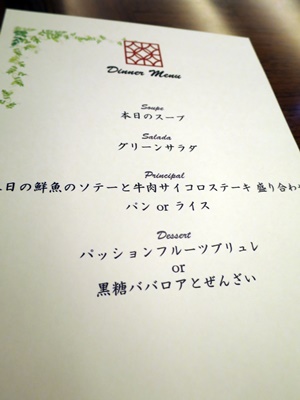 Dinner Menu
Soupe
本日のスープ
Salada
グリーンサラダ
Principal
日の鮮魚のソテーと牛肉サイコロステーキ 盛り合わ
パン or ライス
Dessert
パッションフルーツブリュレ
or
黒糖ババロアとぜんざい